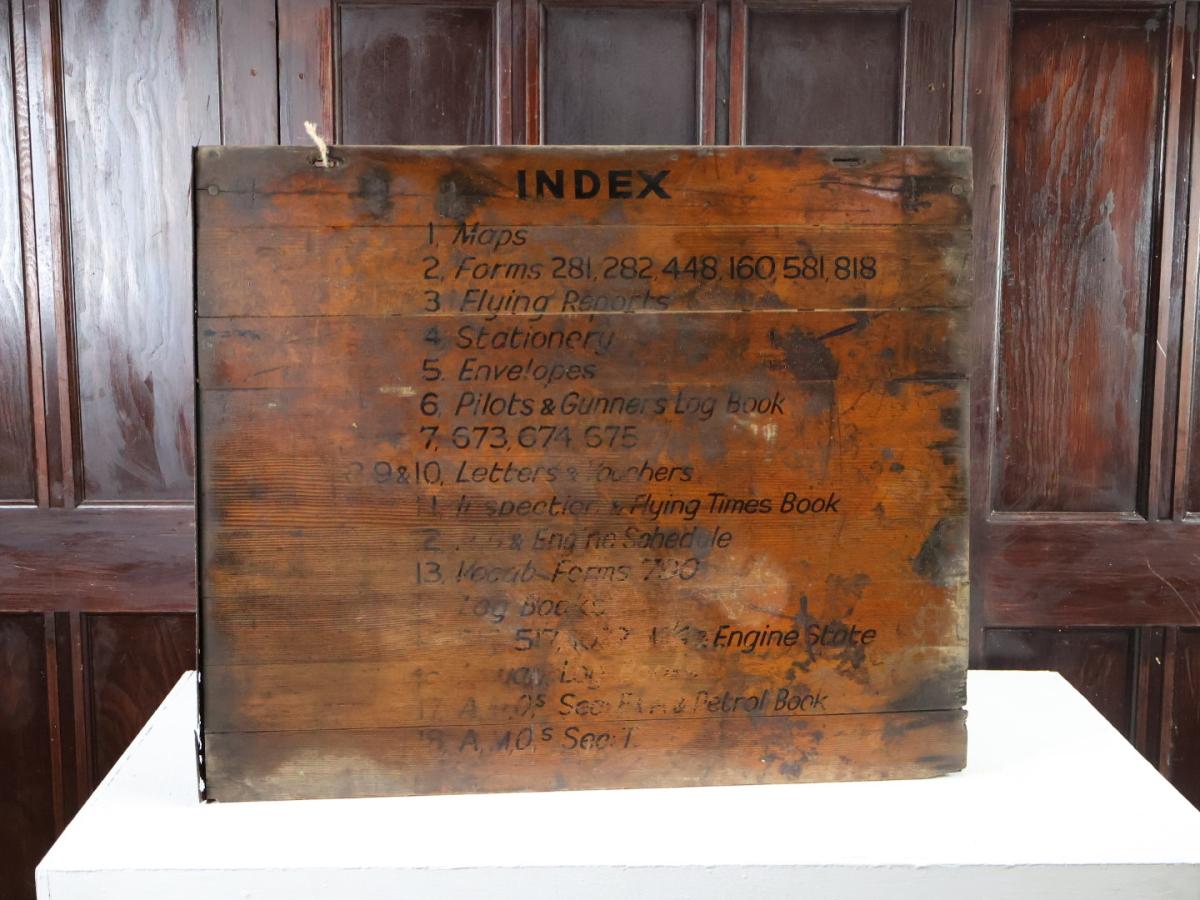 INDEX
1, Maps
2, Forms 281, 282, 448, 160, 581, 818
3 Flying Reports
4 Stationery
5, Envelopes
6, Pilots & Gunners Log Book
7, 673, 674, 675
9 & 10, Letters & Vouchers
11, Inspection & Flying Times Book
2 & Engine Schedule
13, Vocab Forms 790
Log Books
517, Engine State
Log
17, A.M.O,s Sec: & Petrol Book
18, A.M.O,s Sec: T.